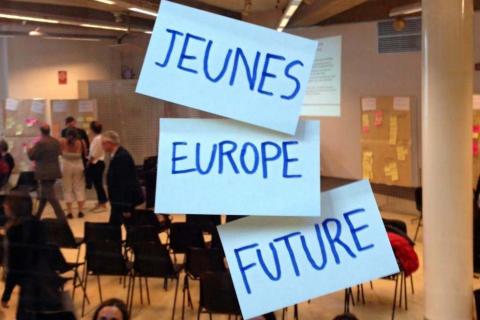 JEUNES
EUROPE
FUTURE